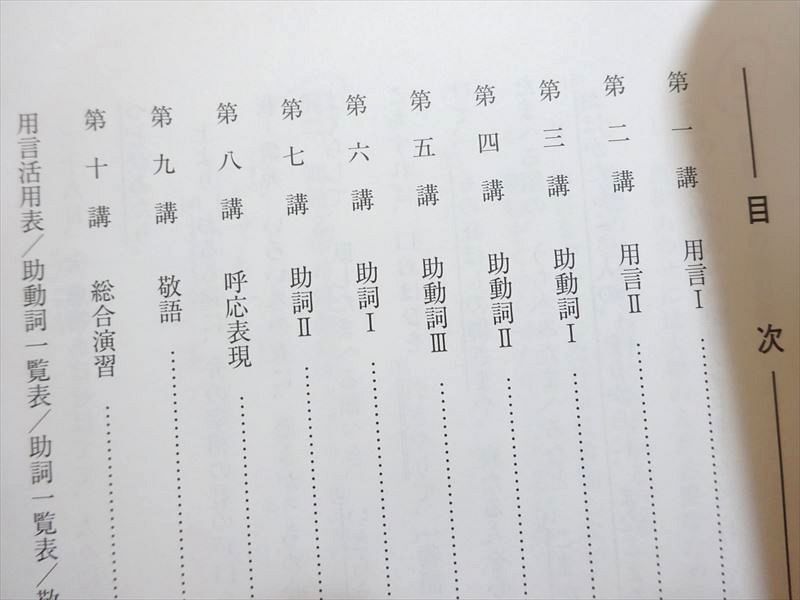 目次
第一講 用言Ⅰ
第二講 用言Ⅱ
第三講 助動詞Ⅰ
第四講 助動詞Ⅱ
第五講 助動詞Ⅲ
第六講 助詞Ⅰ
第七講 助詞Ⅱ
第八講 呼応表現
第九講 敬語
第十講 総合演習
用言活用表/助動詞一覧表/助詞一覧表/敬